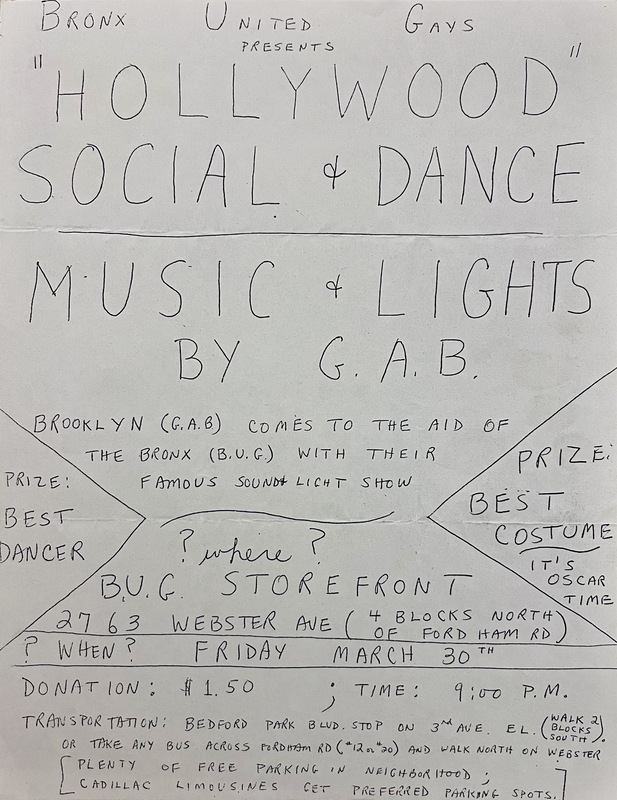 BRONX UNITED GAYS
PRESENTS
"HOLLYWOOD"
SOCIAL & DANCE
MUSIC & LIGHTS
BY G.A.B.
BROOKLYN (G.A.B) COMES TO THE AID OF
THE BRONX (B.U.G.) WITH THEIR
FAMOUS SOUND & LIGHT SHOW
PRIZE:
BEST
DANCER
PRIZE:
BEST
COSTUME
IT'S
OSCAR
TIME
? where ?
B.U.G. STOREFRONT
2763 WEBSTER AVE (4 BLOCKS NORTH
OF FORDHAM RD)
? WHEN? FRIDAY MARCH 30TH
DONATION: $1.50 ; TIME: 9:00 P.M.
TRANSPORTATION: BEDFORD PARK BLVD. STOP ON 3rd AVE. EL. (WALK 2
BLOCKS
SOUTH)
OR TAKE ANY BUS ACROSS FORDHAM RD (#12 or #20) AND WALK NORTH ON WEBSTER
[PLENTY OF FREE PARKING IN NEIGHBORHOOD;
CADILLAC LIMOUSINES GET PREFERRED PARKING SPOTS.]